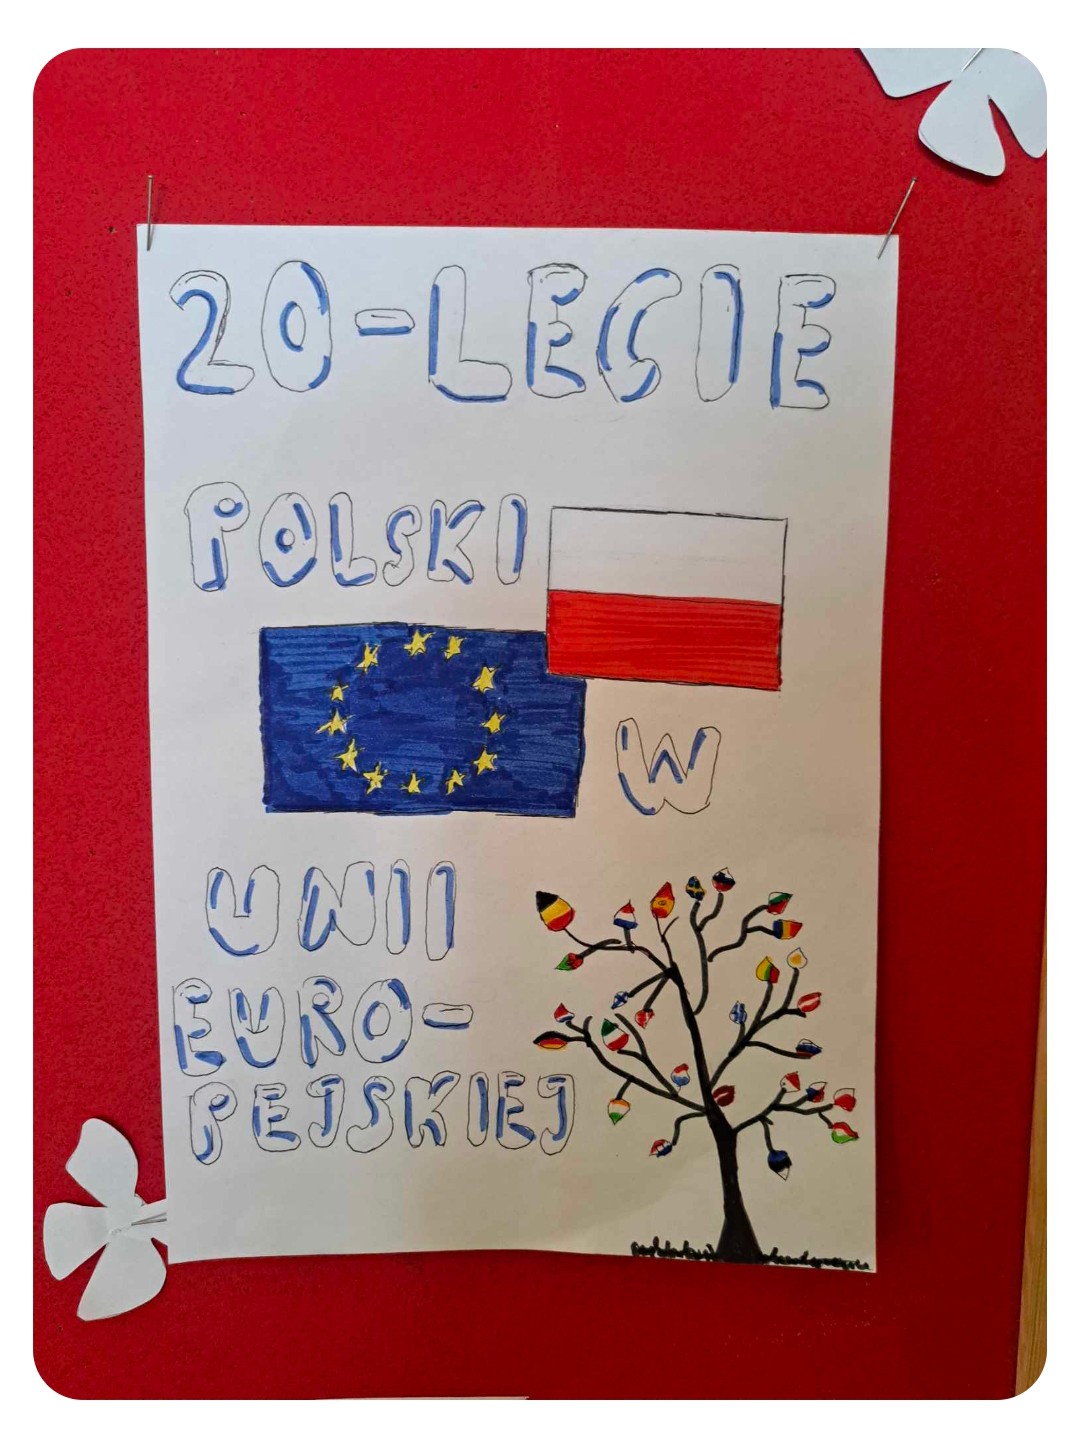 20-LECIE
POLSKI
W
UNII
EURO-
PEJSKIEJ